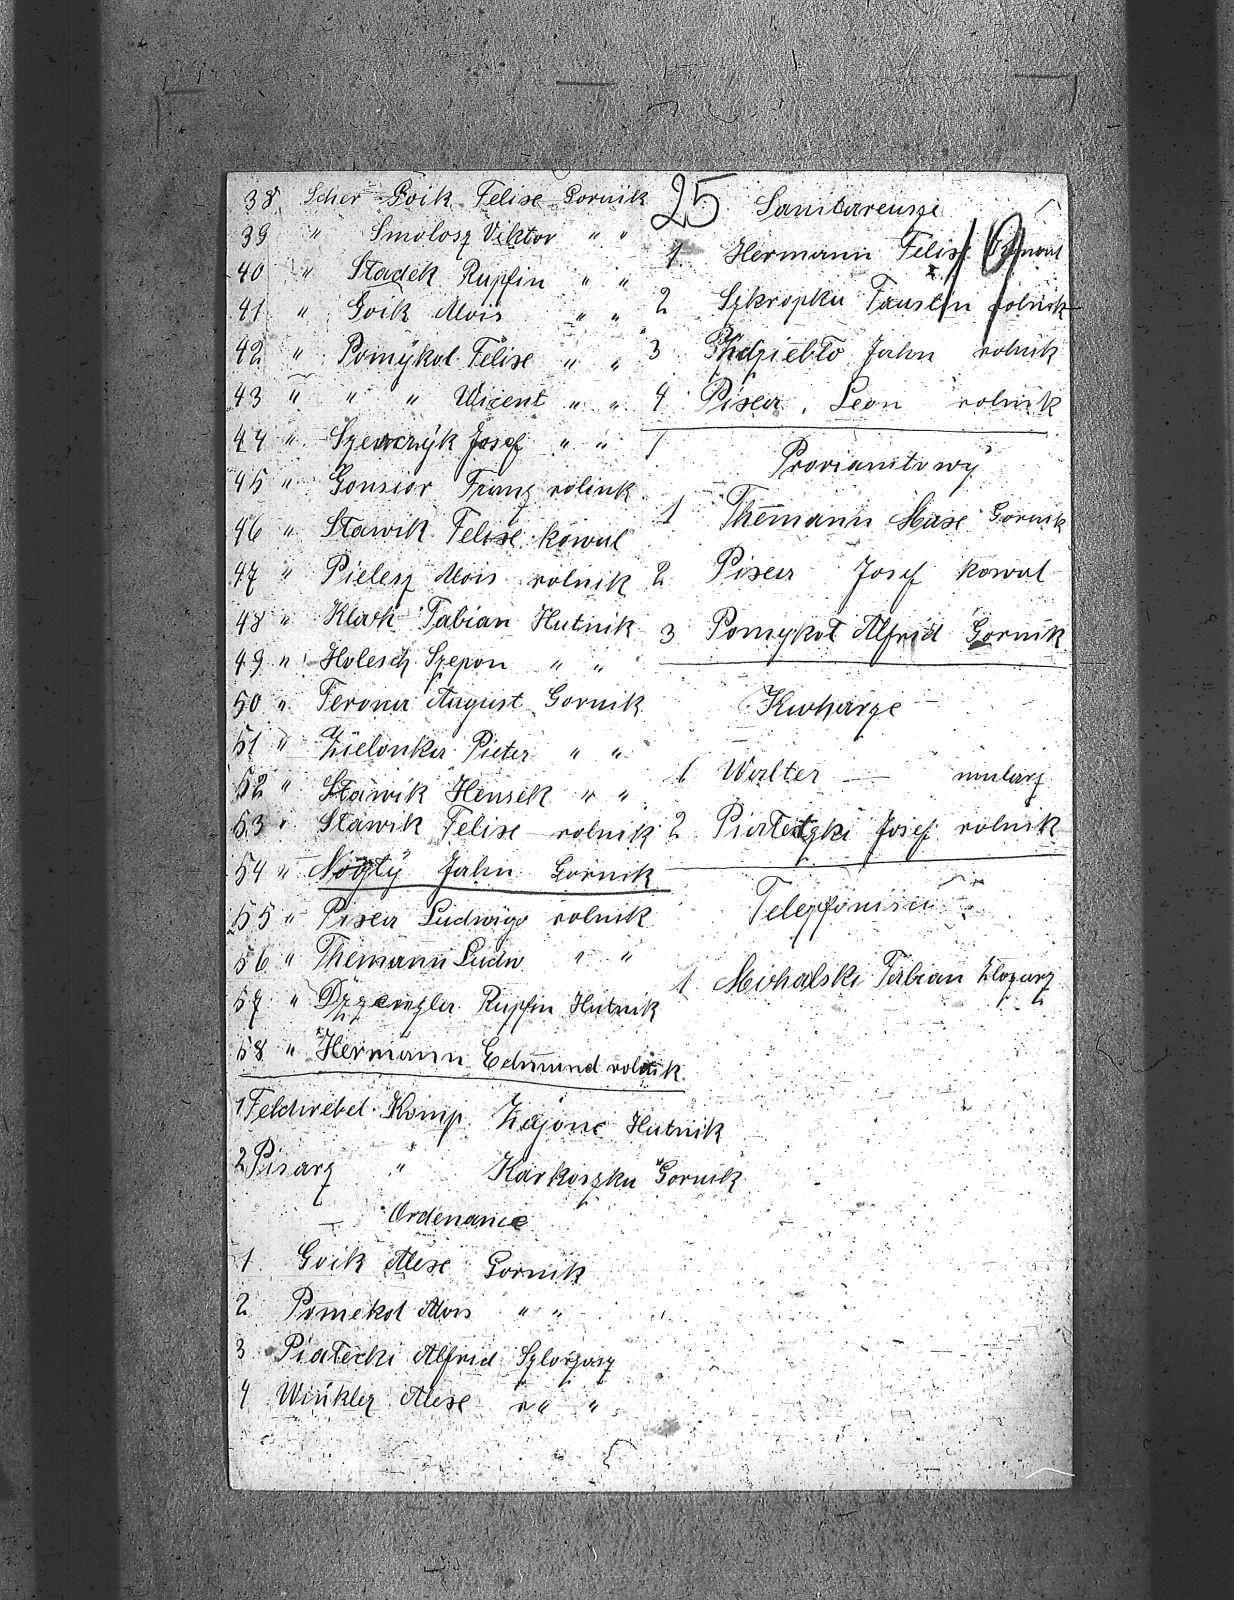 38 Scher Goik Felise Gornik
39 " Smolosz Viktor " "
40 " Stadek Rupfin " "
41 " Goik Alois " "
42 " Pomykol Felise " "
43 " " " Wicent " "
44 " Szewczyk Josef " "
45 " Gonsior Franz rolink
46 " Stawik Felise kowal
47 " Pielesz Alois rolnik
48 " Klark Fabian Hutnik
49 " Holesch Szepon " "
50 " Ferona August Gornik
51 " Zielonka Pieter " "
52 " Stawik Hensek " "
53 " Stawik Felise rolnik
54 " Nogly Jahn Gornik
55 " Pisca Ludwigo rolnik
56 " Themann Ludw " "
57 " Rupfin Hutnik
58 " Hermann Edmund rolnik
1 Feldwebel Komp Zajonc Hutnik
2 Pisarz " Karkoszka Gornik
Ordenance
1 Goik Alese Gornik
2 Pomekol Alois " "
3 Piatecki Alfrid Szlorzasz
4 Winkler Alese " "
25
19
Sanitareusze
1 Hermann Felise
2 Szkropka Faustin rolnik
3 Jahn rolnik
4 Pisca Leon rolnik
Provianitowy
1 Themann Gornik
2 Pisca Josef kowal
3 Pomykol Alfrid Gornik
Kuharze
1 Walter — mularz
2 Piatetzki Josef rolnik
Telepfonisci
1 Mihalski Fabian